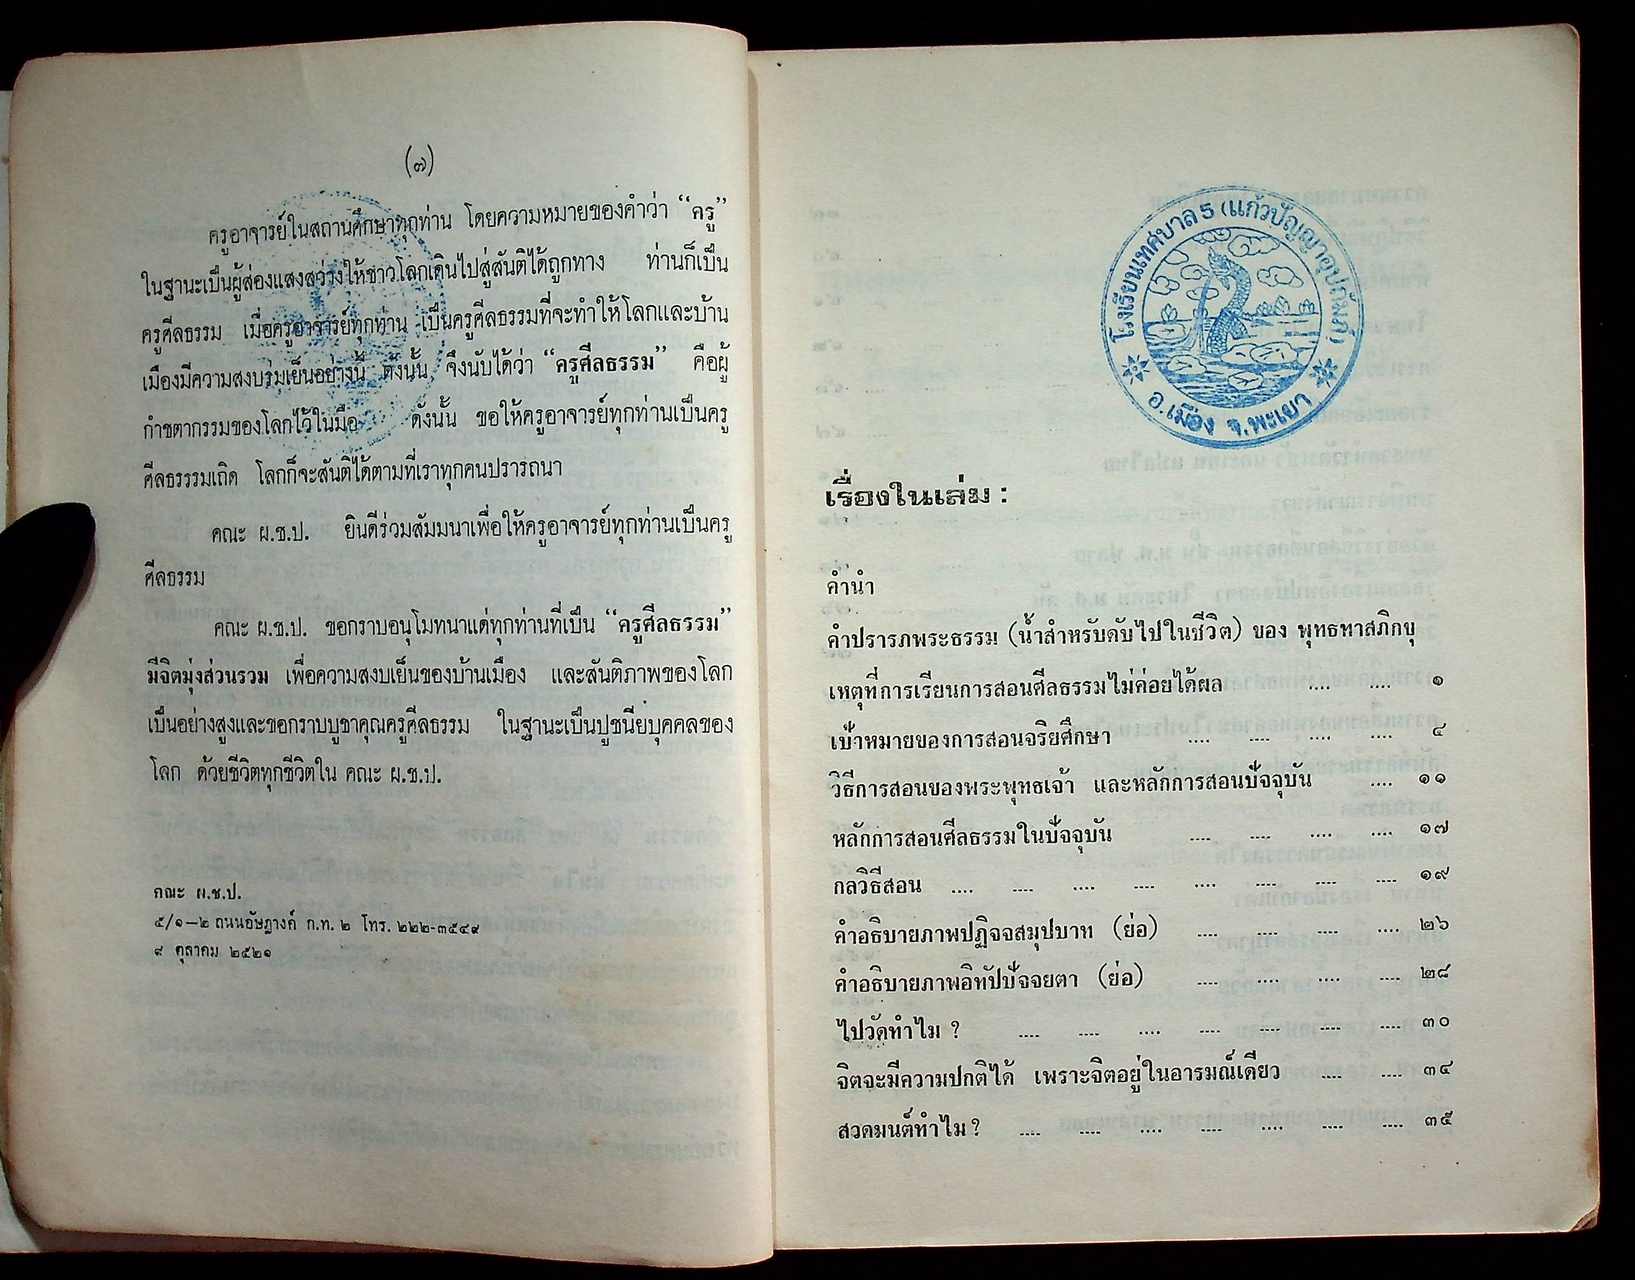 (๗)
ครูอาจารย์ในสถานศึกษาทุกท่าน โดยความหมายของคำว่า “ครู”
ในฐานะเป็นผู้ส่องแสงสว่างให้ชาวโลกเดินไปสู่สันติได้ถูกทาง ท่านก็เป็น
ครูศีลธรรม เมื่อครูอาจารย์ทุกท่าน เป็นครูศีลธรรมที่จะทำให้โลกและบ้าน
เมืองมีความสงบร่มเย็นอย่างนี้ ดังนั้น จึงนับได้ว่า “ครูศีลธรรม” คือผู้
กำชตากรรมของโลกไว้ในมือ ดังนั้น ขอให้ครูอาจารย์ทุกท่านเป็นครู
ศีลธรรรมเถิด โลกก็จะสันติได้ตามที่เราทุกคนปรารถนา
คณะ ผ.ช.ป. ยินดีร่วมสัมมนาเพื่อให้ครูอาจารย์ทุกท่านเป็นครู
ศีลธรรม
คณะ ผ.ช.ป. ขอกราบอนุโมทนาแด่ทุกท่านที่เป็น “ครูศีลธรรม”
มีจิตมุ่งส่วนรวม เพื่อความสงบเย็นของบ้านเมือง และสันติภาพของโลก
เป็นอย่างสูงและขอกราบบูชาคุณครูศีลธรรม ในฐานะเป็นปูชนียบุคคลของ
โลก ด้วยชีวิตทุกชีวิตใน คณะ ผ.ช.ป.
คณะ ผ.ช.ป.
๕/๑—๒ ถนนอัษฎางค์ ก.ท. ๒ โทร. ๒๒๒-๓๕๔๙
๙ ตุลาคม ๒๕๒๑
โรงเรียนเทศบาล ๕ (แก้วปัญญาอุปถัมภ์)
อ.เมือง จ.พะเยา
เรื่องในเล่ม :
คำนำ
คำปรารภพระธรรม (น้ำสำหรับดับไปในชีวิต) ของ พุทธทาสภิกขุ
เหตุที่การเรียนการสอนศีลธรรมไม่ค่อยได้ผล .... .... ๑
เป้าหมายของการสอนจริยศึกษา .... .... .... .... ๔
วิธีการสอนของพระพุทธเจ้า และหลักการสอนปัจจุบัน .... ๑๑
หลักการสอนศีลธรรมในปัจจุบัน .... .... .... .... ๑๗
กลวิธีสอน .... .... .... .... .... .... .... .... ๑๙
คำอธิบายภาพปฏิจจสมุปบาท (ย่อ) .... .... .... .... ๒๖
คำอธิบายภาพอิทัปปัจจยตา (ย่อ) .... .... .... .... ๒๘
ไปวัดทำไม ? .... .... .... .... .... .... .... ๓๐
จิตจะมีความปกติได้ เพราะจิตอยู่ในอารมณ์เดียว .... .... ๓๔
สวดมนต์ทำไม ? .... .... .... .... .... .... .... ๓๕